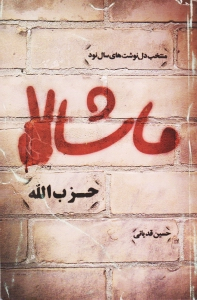 منتخب دل نوشت های سال نود
ماشالا
حزب الله
حسین قدیانی